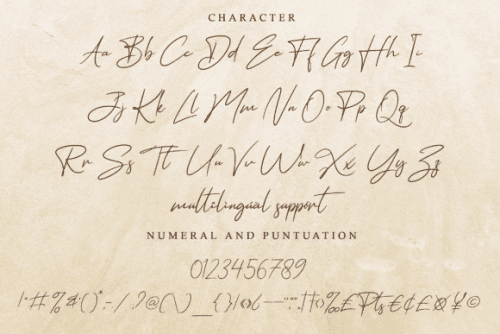 CHARACTER
Aa Bb Cc Dd Ee Ff Gg Hh Ii
Jj Kk Ll Mm Nn Oo Pp Qq
Rr Ss Tt Uu Vv Ww Xx Yy Zz
multilingual support
NUMERAL AND PUNTUATION
0123456789
!·#%&()*:-/.?@(\)_{}